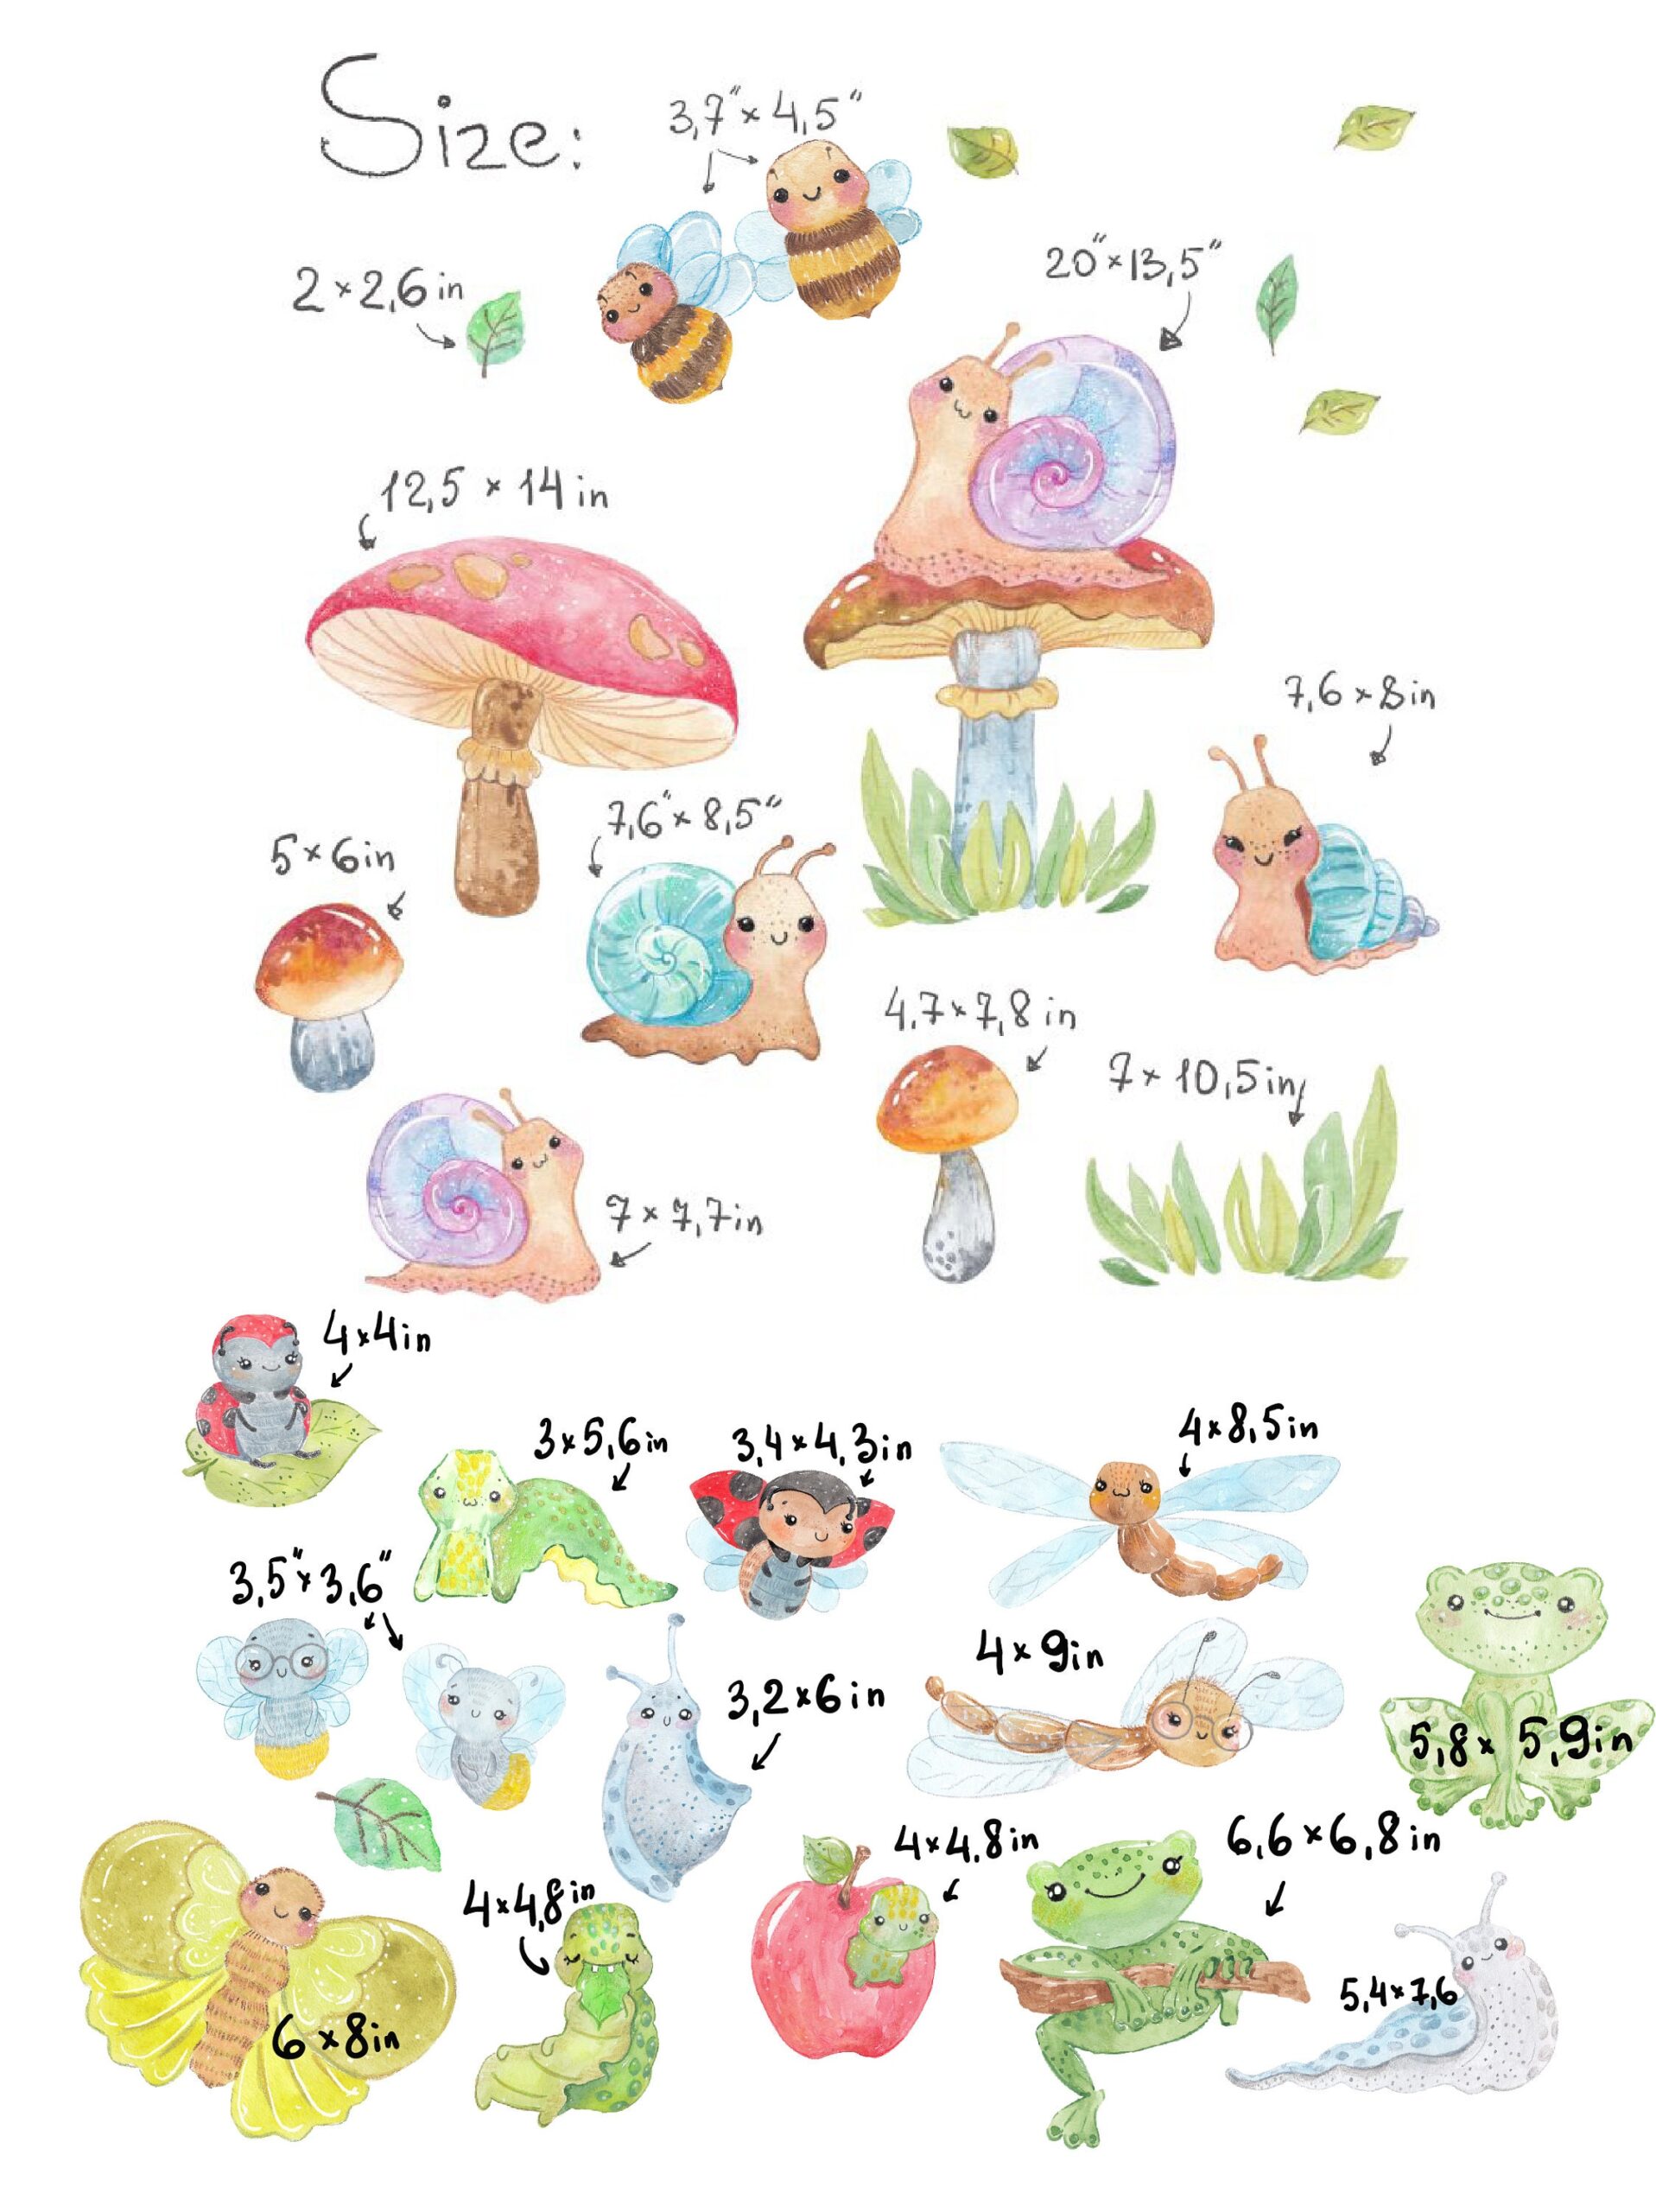 Size:
3,7" × 4,5"
2 × 2,6 in
20" × 13,5"
12,5 × 14 in
7,6 × 8 in
7,6" × 8,5"
5 × 6 in
4,7 × 7,8 in
7 × 10,5 in
7 × 7,7 in
4 × 4 in
3 × 5,6 in
3,4 × 4,3 in
4 × 8,5 in
3,5" × 3,6"
4 × 9 in
3,2 × 6 in
5,8 × 5,9 in
4 × 4,8 in
6,6 × 6,8 in
4 × 4,8 in
5,4 × 7,6
6 × 8 in